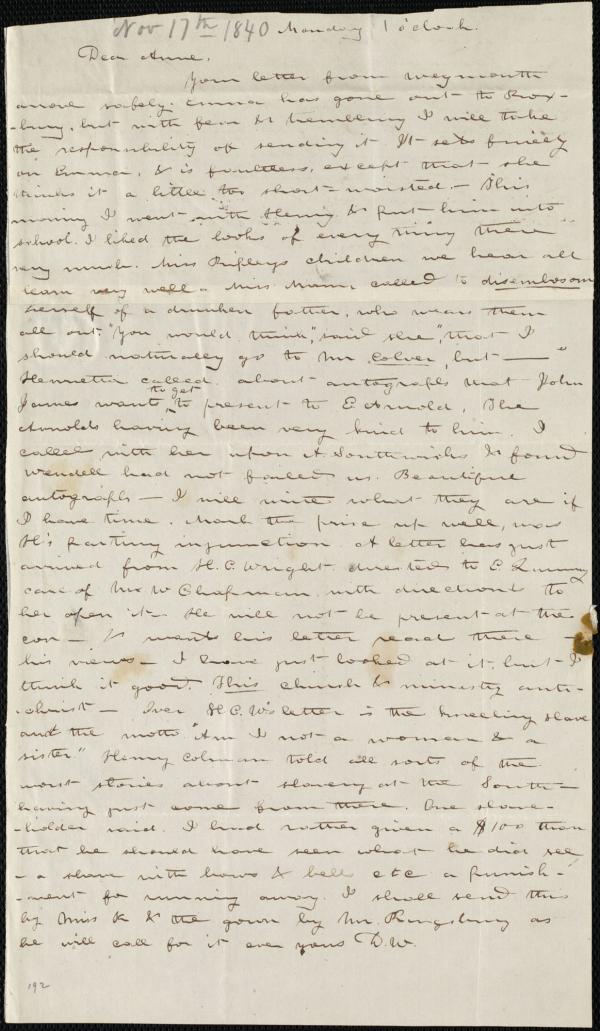 Nov 17th 1840 Monday 1 o'clock.
Dear Anne.
Your letter from Weymouth
arrove safely. Emma has gone out to Rox-
-bury, but with fear & trembling I will take
the responsibility of sending it. It sets finely
on Emma, & is faultless, except that she
thinks it a little too short-waisted - This
morning I went with Henry & put him into
school. I liked the looks of every thing there
very much. Miss Ripley's children we hear all
learn very well - Miss Mann called to disembosom
herself of a drunken father, who wears them
all out. "You would think," said she, "that I
should naturally go to Mr. Colver, but — "
Henrietta called about autographs that John
James wants to get to present to E Arnold, The
Arnolds having been very kind to him. I
called with her upon A. Southwicks & found
Wendell had not failed us. Beautiful
autographs - I will write what they are if
I have time. Mark the price up well, was
H's parting injunction. A letter has just
arrived from H. C. Wright directed to E. Quincy
care of Mrs W Chapman with directions to
her open it - He will not be present at the
con - & wants his letter read there -
his views - I have just looked at it, but I
think it good. This church & ministry anti-
-christ - Over H. C. W's letter is the kneeling slave
and the motto "Am I not a woman & a
sister." Henry Colman told all sorts of the
worst stories about slavery at the South -
having just come from there. One slave-
-holder said. I had rather given a $100 than
that he should have seen what he did see
- a slave with horns & bells etc a punish-
-ment for running away. I shall send this
by Miss K & the gown by Mr. Kingsbury as
he will call for it ever yours D.W.
192